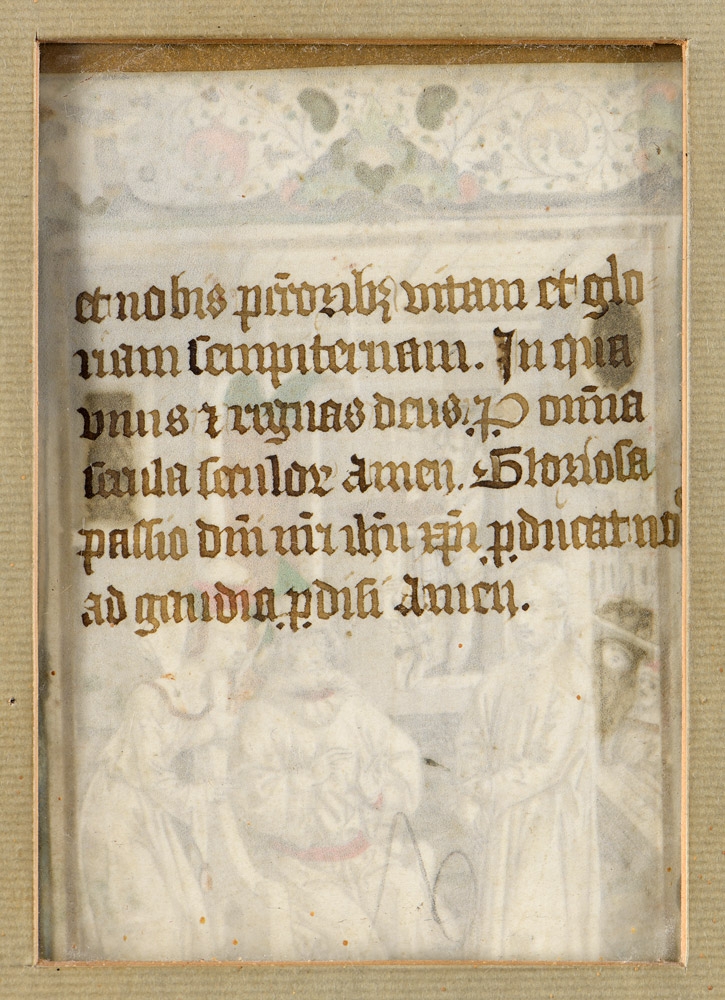 et nobis pc̄toribꝫ vitam et glo
riam sempiternam. In qua
viuis ⁊ regnas deus. P omĩa
secula seculoꝝ Amen. Gloriosa
passio dn̄i nr̄i ih̄u xp̄i ꝑducat nos
ad gaudia ꝑadisi Amen.